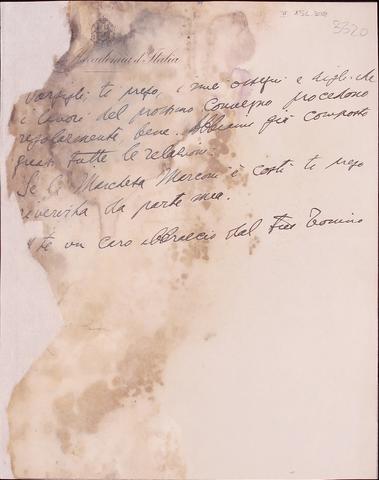 3320
Accademia d'Italia
porgigli, ti prego, i miei ossequi e digli che
i lavori del prossimo Convegno procedono
regolarmente, bene. Abbiamo già composto
quasi tutte le relazioni.
Se la Marchesa Marconi è costì ti prego
riverirla da parte mia.
A te un caro abbraccio dal tuo